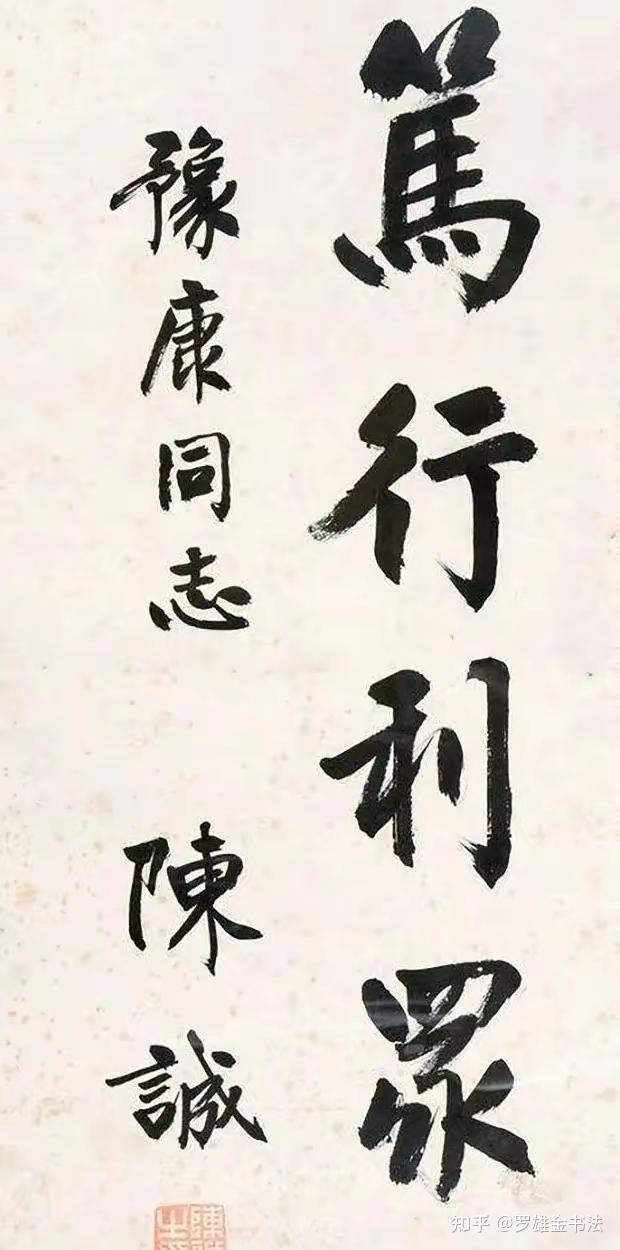 篤行利眾
豫康同志
陳誠
知乎 @罗雄金书法